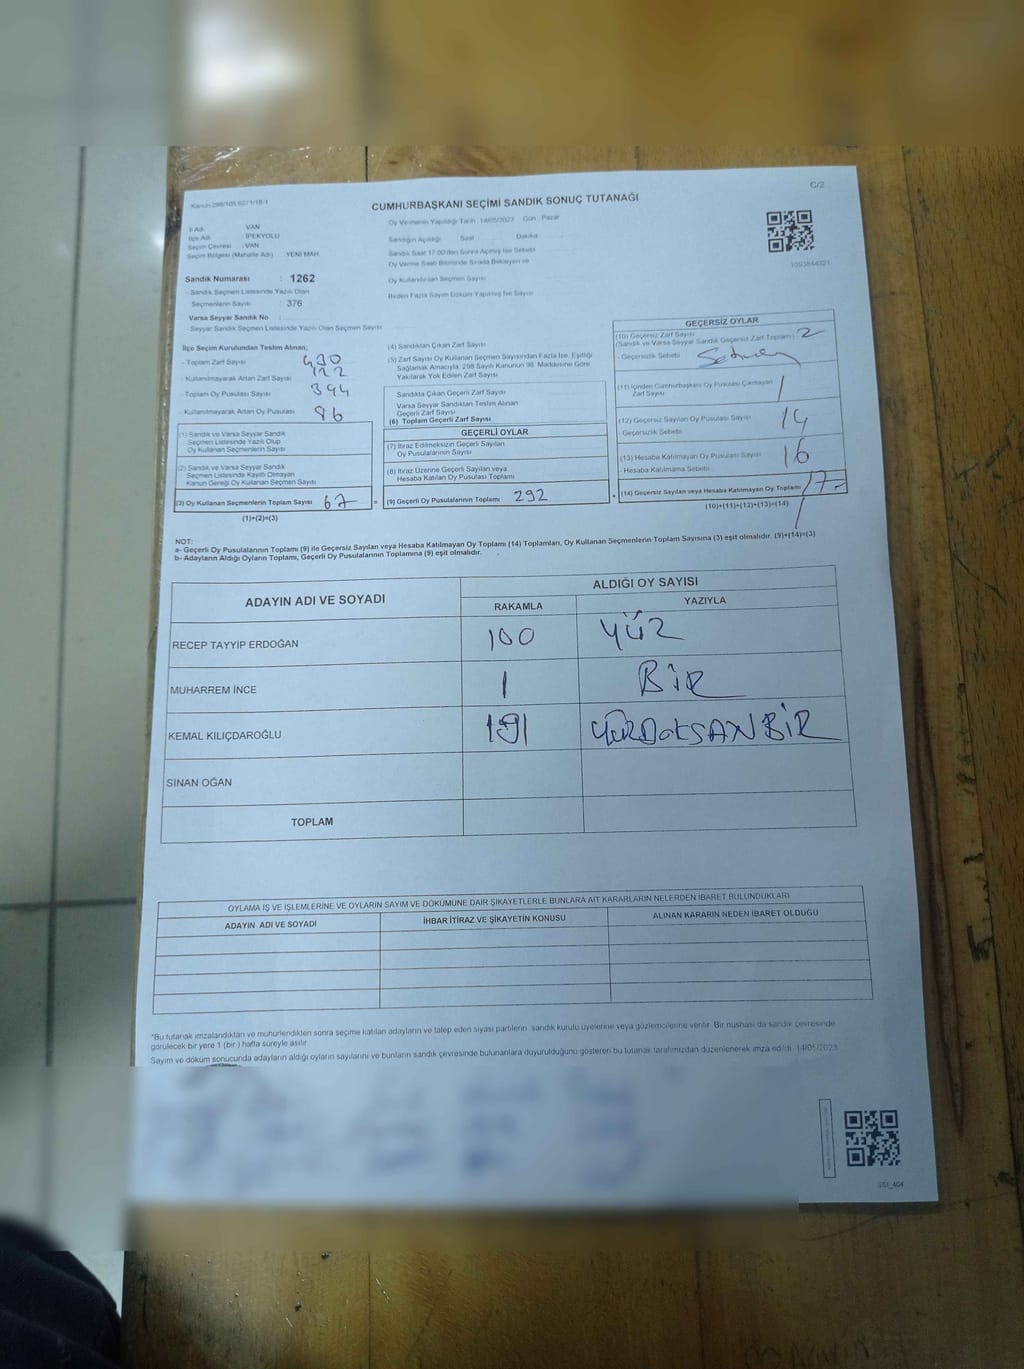 C/2
Kanun 298/105 6271/18-1
CUMHURBAŞKANI SEÇİMİ SANDIK SONUÇ TUTANAĞI
Oy Vermenin Yapıldığı Tarih : 14/05/2023 Gün : Pazar
İl Adı : VAN
İlçe Adı : İPEKYOLU
Seçim Çevresi : VAN
Seçim Bölgesi (Mahalle Adı) YENİ MAH
Sandığın Açıldığı Saat Dakika
Sandık Saat 17:00'den Sonra Açılmış İse Sebebi
Oy Verme Saati Bitiminde Sırada Bekleyen ve
Oy Kullandırılan Seçmen Sayısı
Birden Fazla Sayım Döküm Yapılmış İse Sayısı
1093844321
Sandık Numarası : 1262
- Sandık Seçmen Listesinde Yazılı Olan
Seçmenlerin Sayısı : 376
Varsa Seyyar Sandık No
- Seyyar Sandık Seçmen Listesinde Yazılı Olan Seçmen Sayısı
İlçe Seçim Kurulundan Teslim Alınan;
- Toplam Zarf Sayısı
- Kullanılmayarak Artan Zarf Sayısı 122
- Toplam Oy Pusulası Sayısı 394
- Kullanılmayarak Artan Oy Pusulası 86
(1) Sandık ve Varsa Seyyar Sandık
Seçmen Listesinde Yazılı Olup
Oy Kullanan Seçmenlerin Sayısı
(2) Sandık ve Varsa Seyyar Sandık
Seçmen Listesinde Kayıtlı Olmayan
Kanun Gereği Oy Kullanan Seçmen Sayısı
(3) Oy Kullanan Seçmenlerin Toplam Sayısı 67 =
(1)+(2)=(3)
(4) Sandıktan Çıkan Zarf Sayısı
(5) Zarf Sayısı Oy Kullanan Seçmen Sayısından Fazla İse, Eşitliği
Sağlamak Amacıyla, 298 Sayılı Kanunun 98. Maddesine Göre
Yakılarak Yok Edilen Zarf Sayısı
Sandıkta Çıkan Geçerli Zarf Sayısı
Varsa Seyyar Sandıktan Teslim Alınan
Geçerli Zarf Sayısı
(6) Toplam Geçerli Zarf Sayısı
GEÇERLİ OYLAR
(7) İtiraz Edilmeksizin Geçerli Sayılan
Oy Pusulasının Sayısı
(8) İtiraz Üzerine Geçerli Sayılan veya
Hesaba Katılan Oy Pusulası Toplamı
(9) Geçerli Oy Pusulalarının Toplamı 292 +
GEÇERSİZ OYLAR
(10) Geçersiz Zarf Sayısı
(Sandık ve Varsa Seyyar Sandık Geçersiz Zarf Toplamı) 2
- Geçersizlik Sebebi
(11) İçinden Cumhurbaşkanı Oy Pusulası Çıkmayan
Zarf Sayısı
(12) Geçersiz Sayılan Oy Pusulası Sayısı 14
- Geçersizlik Sebebi
(13) Hesaba Katılmayan Oy Pusulası Sayısı 16
- Hesaba Katılmama Sebebi
(14) Geçersiz Sayılan veya Hesaba Katılmayan Oy Toplamı
(10)+(11)+(12)+(13)=(14)
NOT:
a- Geçerli Oy Pusulalarının Toplamı (9) ile Geçersiz Sayılan veya Hesaba Katılmayan Oy Toplamı (14) Toplamları, Oy Kullanan Seçmenlerin Toplam Sayısına (3) eşit olmalıdır. (9)+(14)=(3)
b- Adayların Aldığı Oyların Toplamı, Geçerli Oy Pusulalarının Toplamına (9) eşit olmalıdır.
ADAYIN ADI VE SOYADI
ALDIĞI OY SAYISI
RAKAMLA YAZIYLA
RECEP TAYYİP ERDOĞAN 100 YÜZ
MUHARREM İNCE 1 BİR
KEMAL KILIÇDAROĞLU 191 YÜZDOKSANBİR
SİNAN OĞAN
TOPLAM
OYLAMA İŞ VE İŞLEMLERİNE VE OYLARIN SAYIM VE DÖKÜMÜNE DAİR ŞİKAYETLERLE BUNLARA AİT KARARLARIN NELERDEN İBARET BULUNDUKLARI
ADAYIN ADI VE SOYADI İHBAR İTİRAZ VE ŞİKAYETİN KONUSU ALINAN KARARIN NEDEN İBARET OLDUĞU
*Bu tutanak imzalandıktan ve mühürlendikten sonra seçime katılan adayların ve talep eden siyasi partilerin sandık kurulu üyelerine veya gözlemcilerine verilir. Bir nüshası da sandık çevresinde
görülecek bir yere 1 (bir) hafta süreyle asılır.
Sayım ve döküm sonucunda adayların aldığı oyların sayılarını ve bunların sandık çevresinde bulunanlara duyurulduğunu gösteren bu tutanak tarafımızdan düzenlenerek imza edildi. 14/05/2023